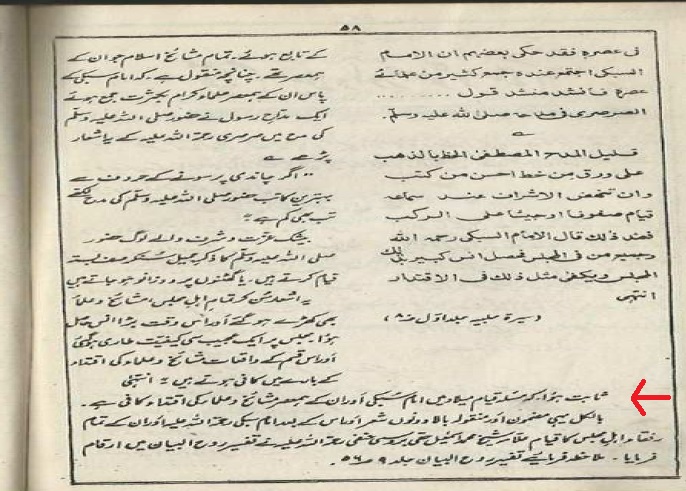 ۵۸
فى عصره فقد حكى بعضهم ان الامام
السبكى اجتمع عنده جمع كثير من علمائے
عصره فانشد منشد قول ..........
الصرصرى فى مدحه صلى الله عليه وسلم.
قليل المدح المصطفى الخط بالذهب
على ورق من خط احسن من كتب
وان تنهض الاشراف عند سماعه
قيام صفوفا او جثيا على الركب
فعند ذلك قال الامام السبكى رحمه الله
وجميع من فى المجلس فحصل انس كبير بذلك
المجلس ويكفى مثل ذلك فى الاقتداء
انتهى
(سيرة حلبيه جلد اول ص۸۰)
کے تابع ہوئے۔ تمام مشائخ اسلام جو ان کے
ہمعصر تھے۔ چنانچہ منقول ہے کہ امام سبکی کے
پاس ان کے ہمعصر علماء کرام بکثرت جمع ہوئے
ایک مداح رسول نے حضور صلی اللہ علیہ وسلم
کی مدح میں صرصری رحمۃ اللہ علیہ کے یہ اشعار
پڑھے ؎
"اگر چاندی پر سونے کے حروف سے
بہترین کاتب حضور صلی اللہ علیہ وسلم کی مدح لکھے
تب بھی کم ہے"
بیشک عزت و شرف والے لوگ حضور
صلی اللہ علیہ وسلم کا ذکر جمیل سنکر صف بستہ
قیام کرتے ہیں۔ یا گھٹنوں پر دو زانو ہو جاتے ہیں
یہ اشعار سن کر تمام اہل مجلس مشائخ و علماء
بھی کھڑے ہو گئے اور اس وقت بڑا انس حاصل
ہوا۔ مجلس پر ایک عجیب سی کیفیت طاری ہو گئی
اور اس قسم کے واقعات مشائخ و علماء کی اقتداء
کے بارے میں کافی ہوتے ہیں" انتہیٰ
ثابت ہوا کہ مسئلہ قیام میلاد میں امام سبکی اور ان کے ہمعصر مشائخ و علماء کی اقتداء کافی ہے۔
بالکل یہی مضمون اور منقولہ بالا دونوں شعر اور اس کے بعد امام سبکی رحمۃ اللہ علیہ اور ان کے تمام
رفقاء اہل مجلس کا قیام علامہ شیخ محمد اسمٰعیل حقی بروسی حنفی رحمۃ اللہ علیہ نے تفسیر روح البیان میں ارقام
فرمایا۔ ملاحظہ فرمایئے تفسیر روح البیان جلد ۹ ص ۵۶